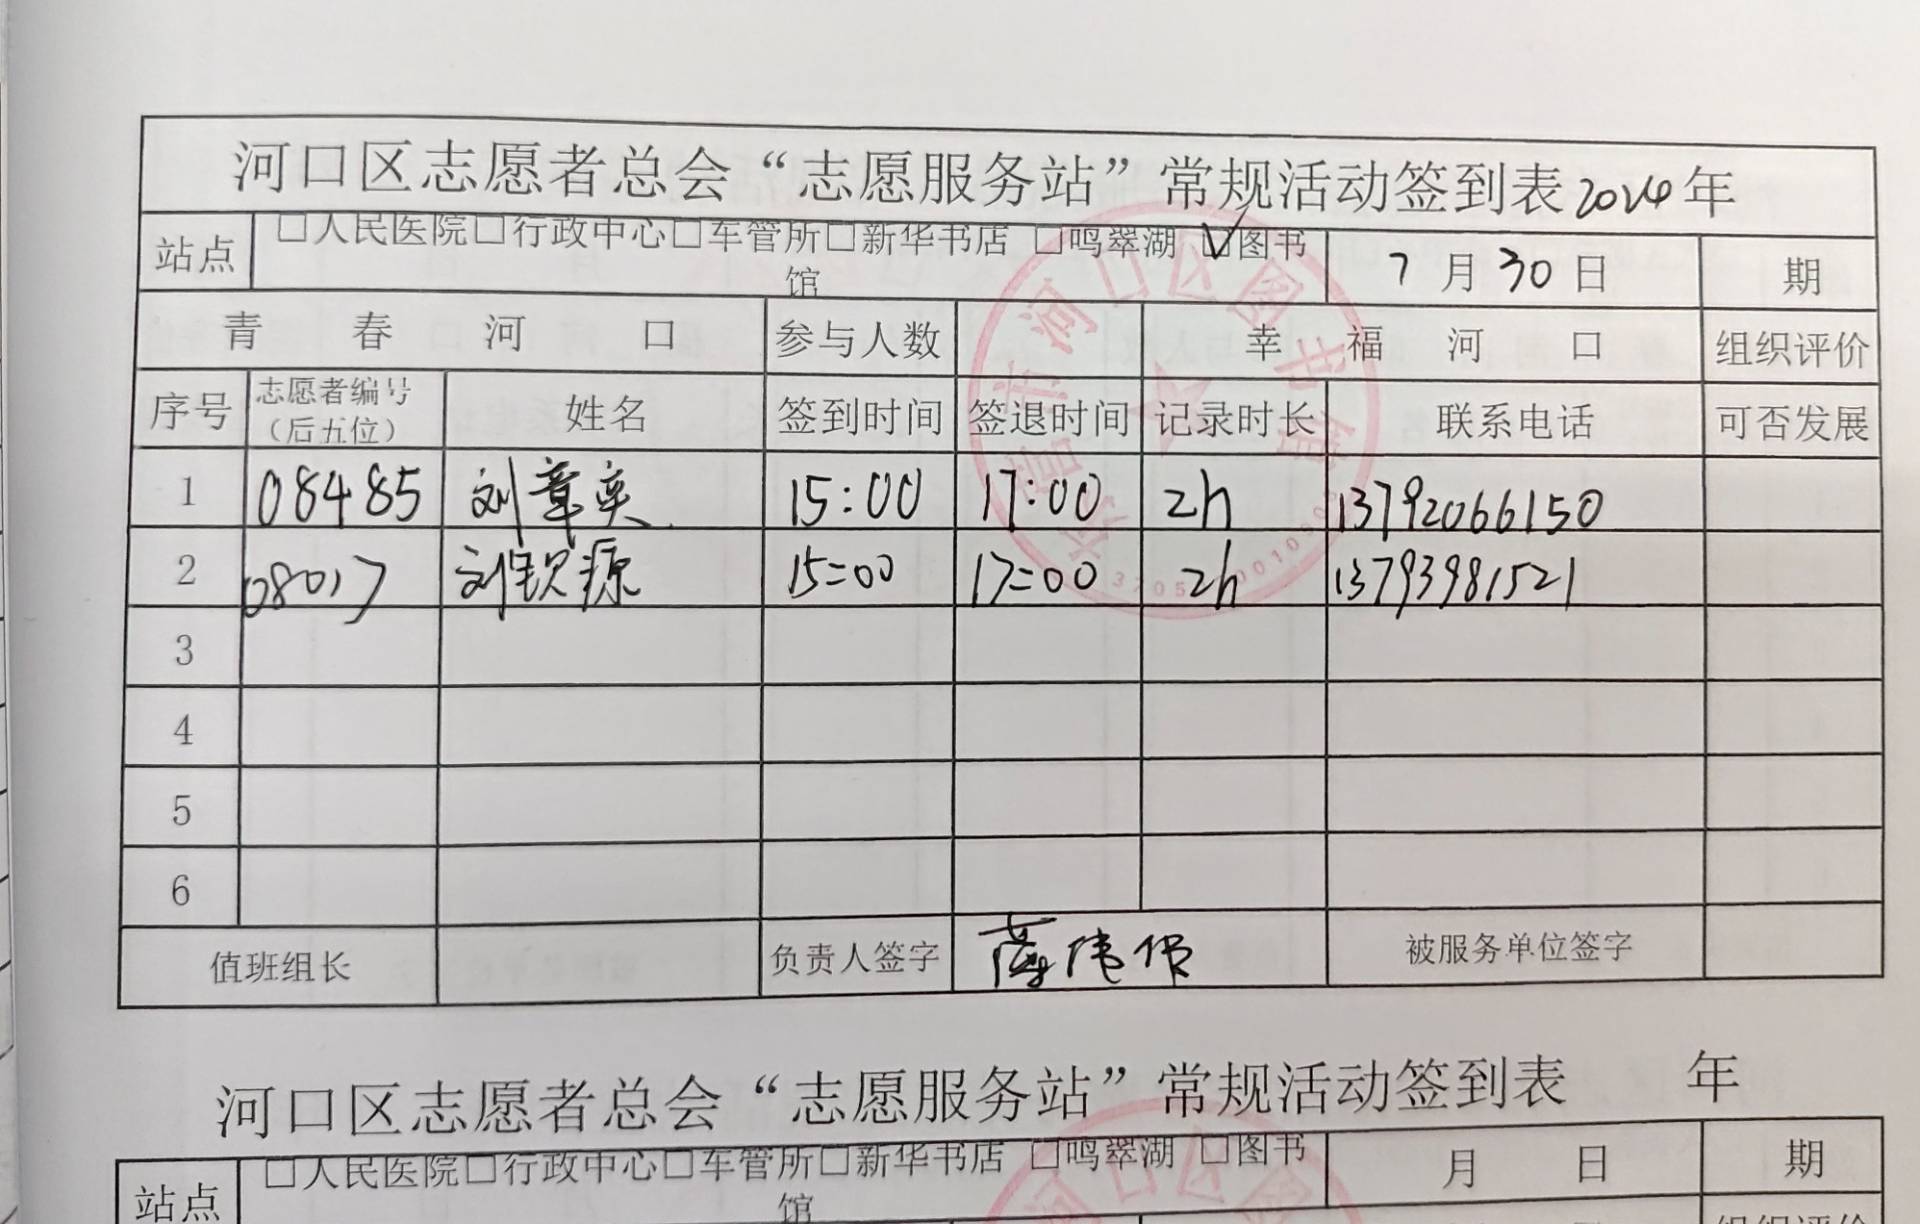 河口区志愿者总会“志愿服务站”常规活动签到表2024年
站点 □人民医院□行政中心□车管所□新华书店 □鸣翠湖 ☑图书馆 7月30日 期
青春河口 参与人数 幸福河口 组织评价
序号 志愿者编号（后五位） 姓名 签到时间 签退时间 记录时长 联系电话 可否发展
1 08485 刘章奕 15:00 17:00 2h 13792066150
2 08017 刘钦源 15:00 17:00 2h 13793981521
3
4
5
6
值班组长 负责人签字 薛 被服务单位签字
河口区志愿者总会“志愿服务站”常规活动签到表 年
站点 □人民医院□行政中心□车管所□新华书店 □鸣翠湖 □图书馆 月 日 期
组织评价